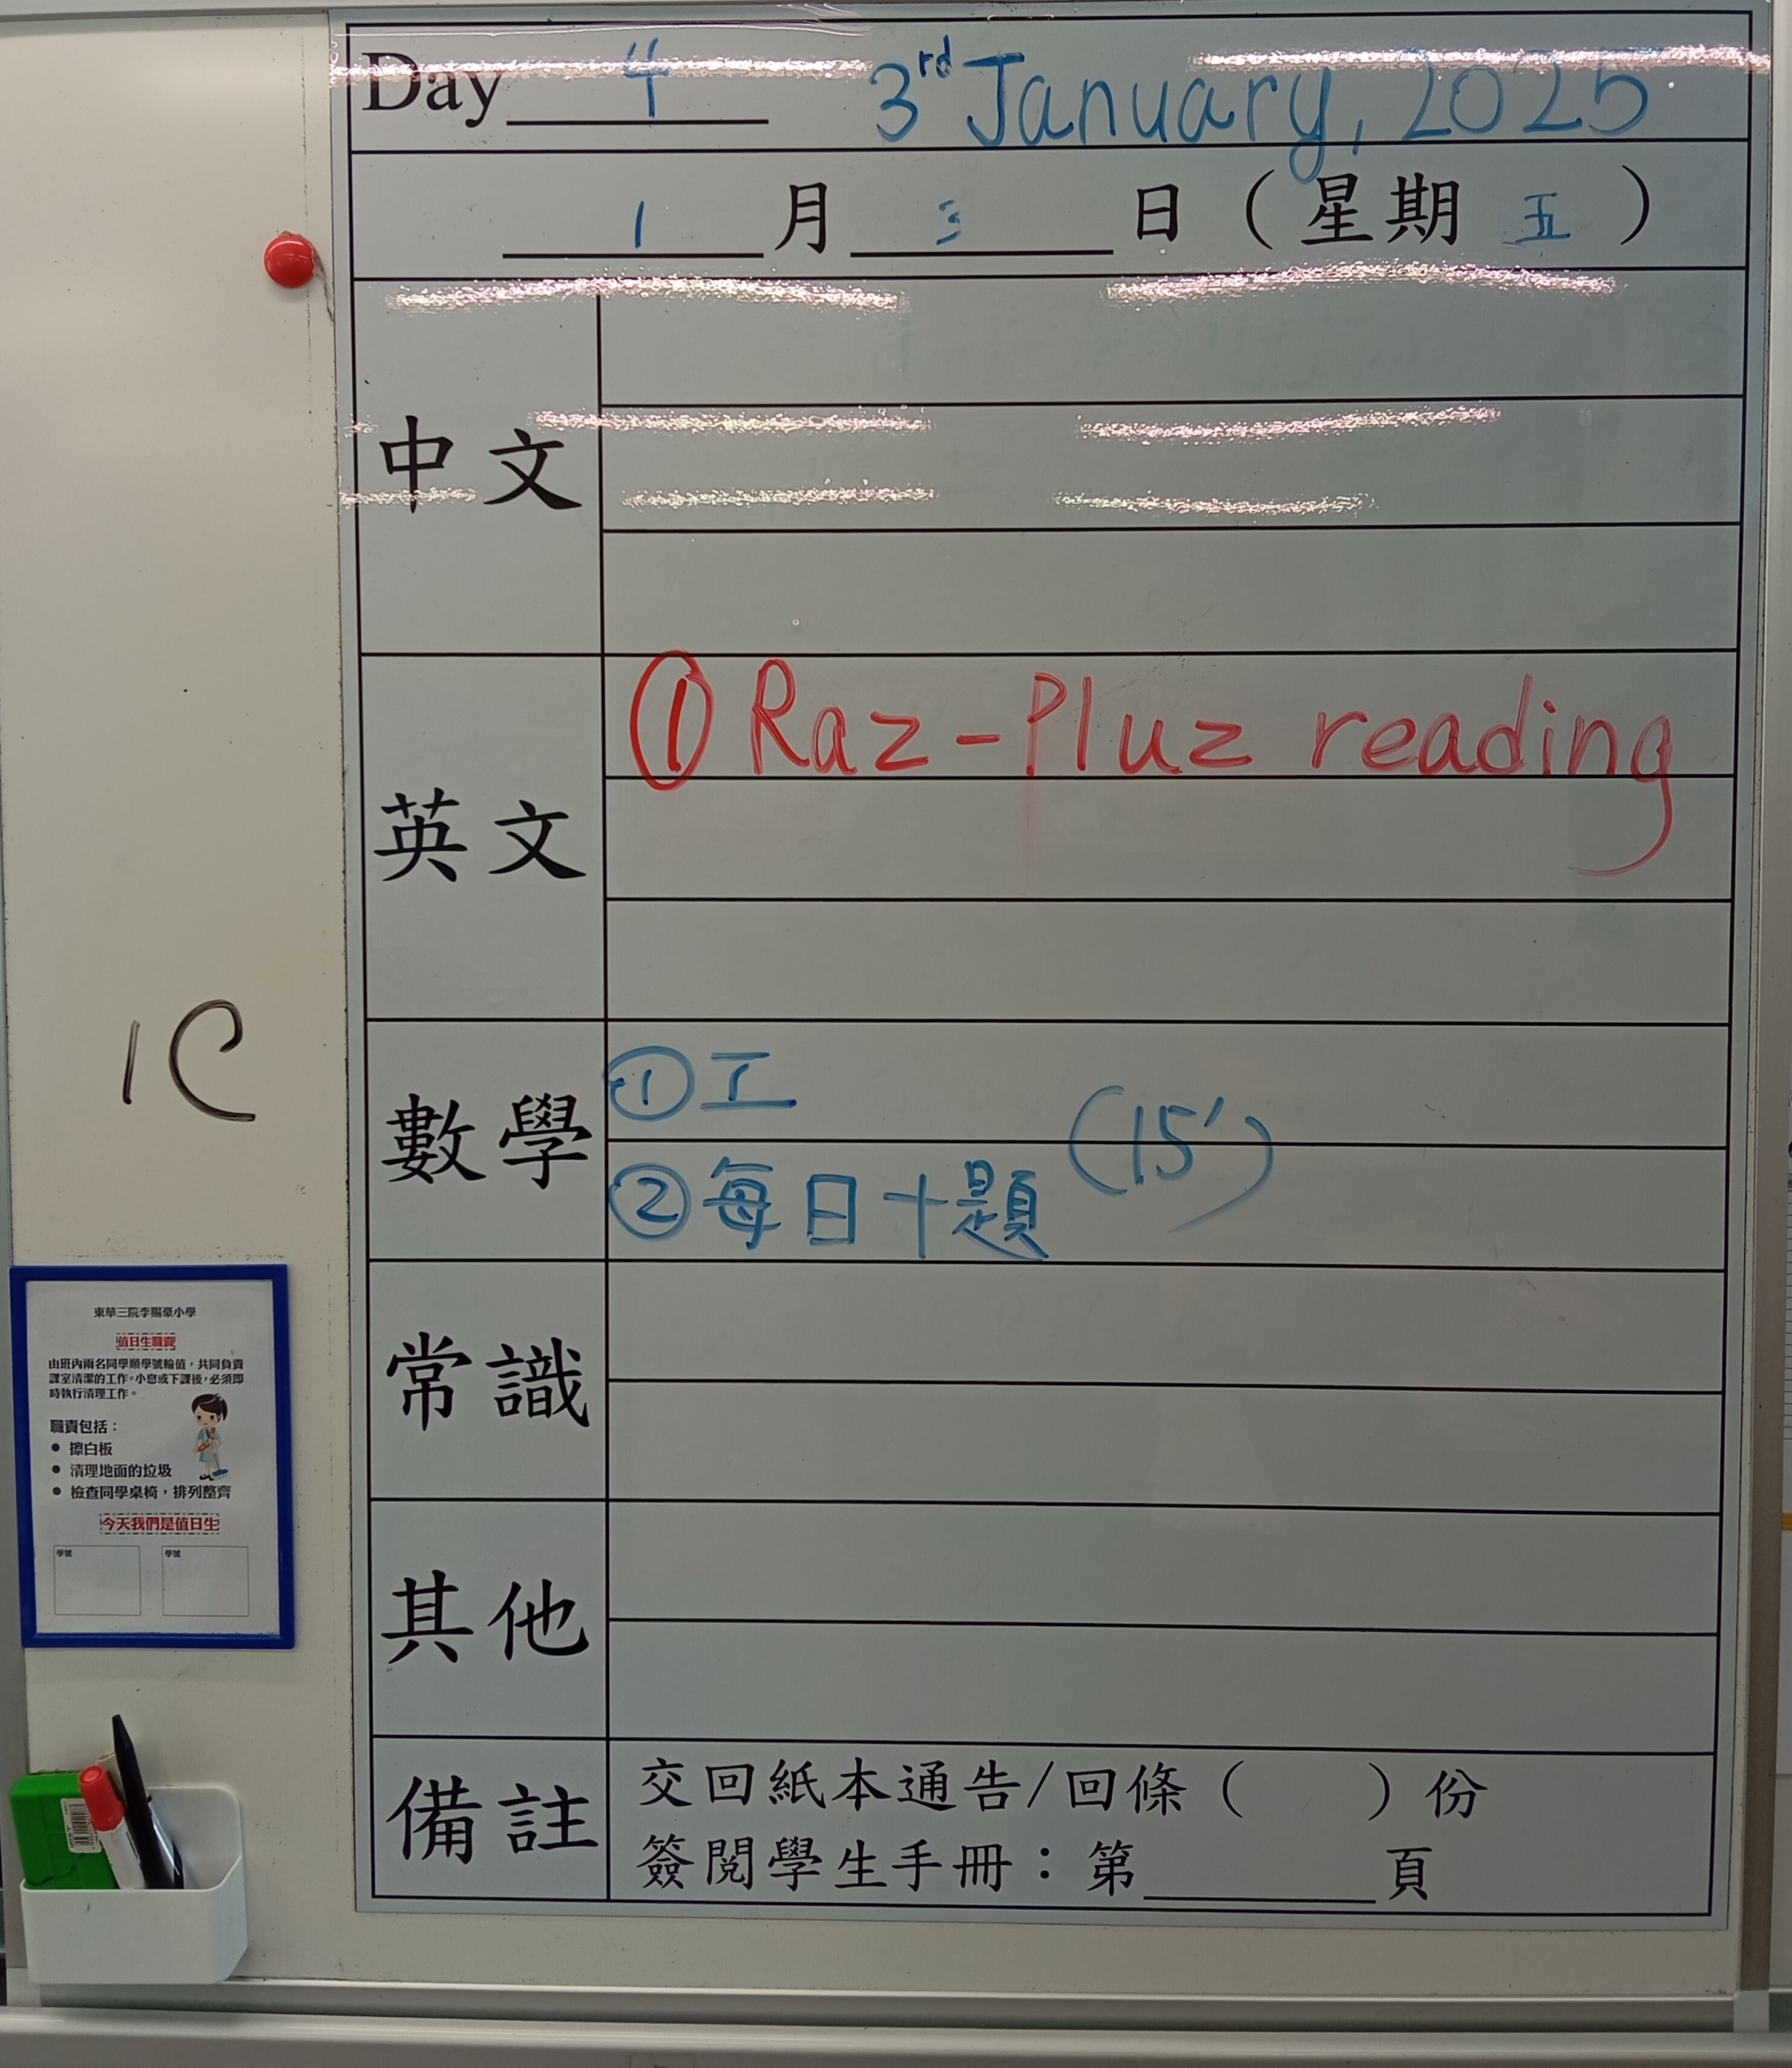 Day 4 3rd January, 2025
1 月 3 日 ( 星期 五 )
中文
英文
① Raz-Pluz reading
數學
① 工
② 每日十題
(15')
常識
其他
備註
交回紙本通告/回條 ( ) 份
簽閱學生手冊：第 頁
1C
東華三院李賜豪小學
值日生職責
由班內兩名同學順學號輪值，共同負責
課室清潔的工作。小息或下課後，必須即
時執行清理工作。
職責包括：
● 擦白板
● 清理地面的垃圾
● 檢查同學桌椅，排列整齊
今天我們是值日生
學號 學號